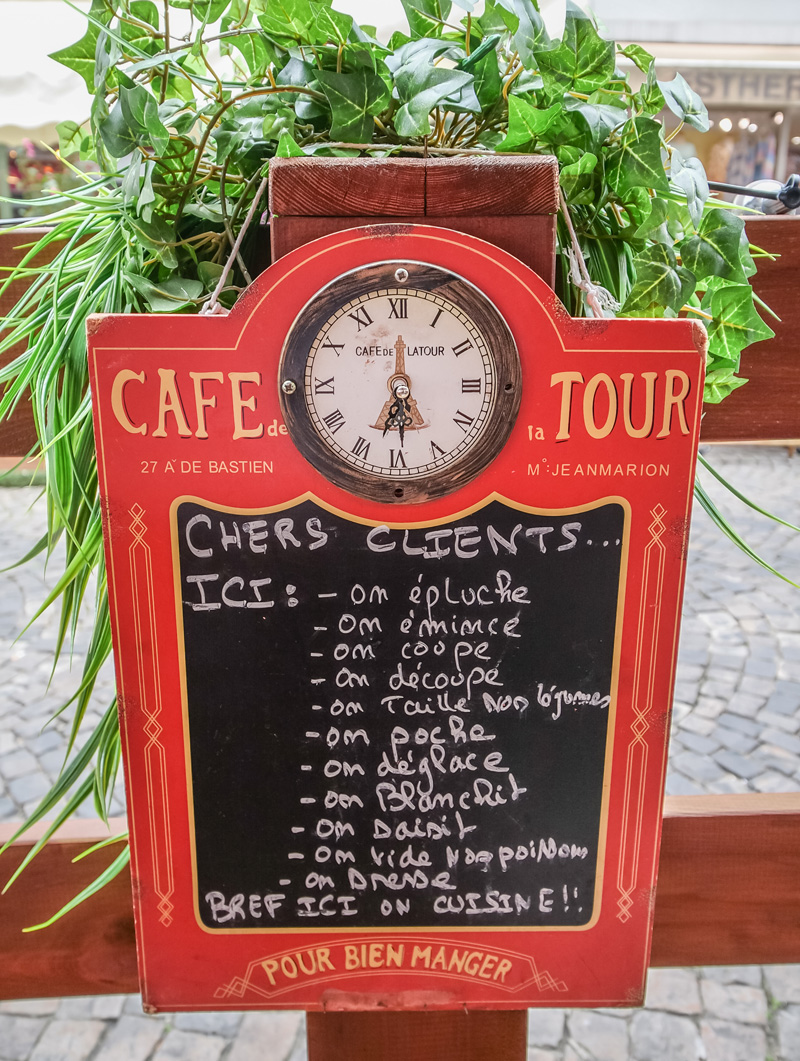 STHER
XII I II III IV V VI VII VIII IX X XI
CAFE DE LATOUR
CAFE de la TOUR
27 A˅ DE BASTIEN
M°: JEANMARION
CHERS CLIENTS...
ICI: - on épluche
- on émince
- on coupe
- on découpe
- on Taille Nos légumes
- on poche
- on déglace
- on Blanchit
- on Saisit
- on vide Nos poissons
- on Dresse
BREF ICI ON CUISINE!!
POUR BIEN MANGER